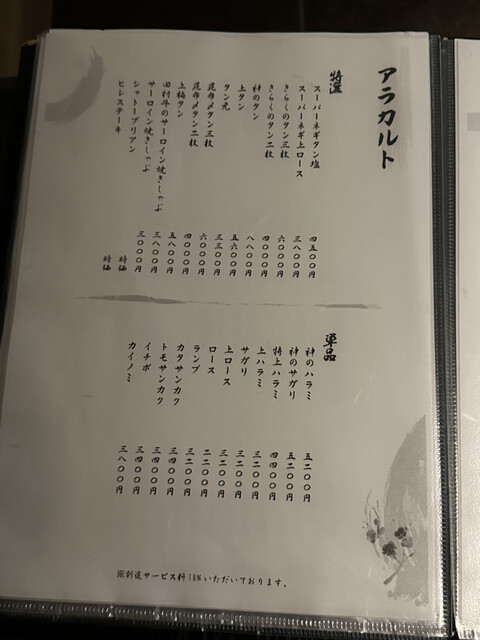 アラカルト
特選
スーパーネギタン塩 四五〇〇円
スーパーネギ上ロース 三八〇〇円
きらくのタン三枚 六〇〇〇円
きらくのタン二枚 四〇〇〇円
神のタン 八八〇〇円
上タン 五六〇〇円
タン元 三三〇〇円
昆布〆タン三枚 六〇〇〇円
昆布〆タン二枚 四〇〇〇円
上極タン 五八〇〇円
田村牛のサーロイン焼きしゃぶ 三八〇〇円
サーロイン焼きしゃぶ 三〇〇〇円
シャトーブリアン 特価
ヒレステーキ 特価
単品
神のハラミ 五二〇〇円
神のサガリ 五二〇〇円
特上ハラミ 四四〇〇円
上ハラミ 三二〇〇円
サガリ 三二〇〇円
上ロース 三二〇〇円
ロース 二二〇〇円
ランプ 三二〇〇円
カタサンカク 三四〇〇円
トモサンカク 三四〇〇円
イチボ 三四〇〇円
カイノミ 三八〇〇円
※別途サービス料10%いただいております。